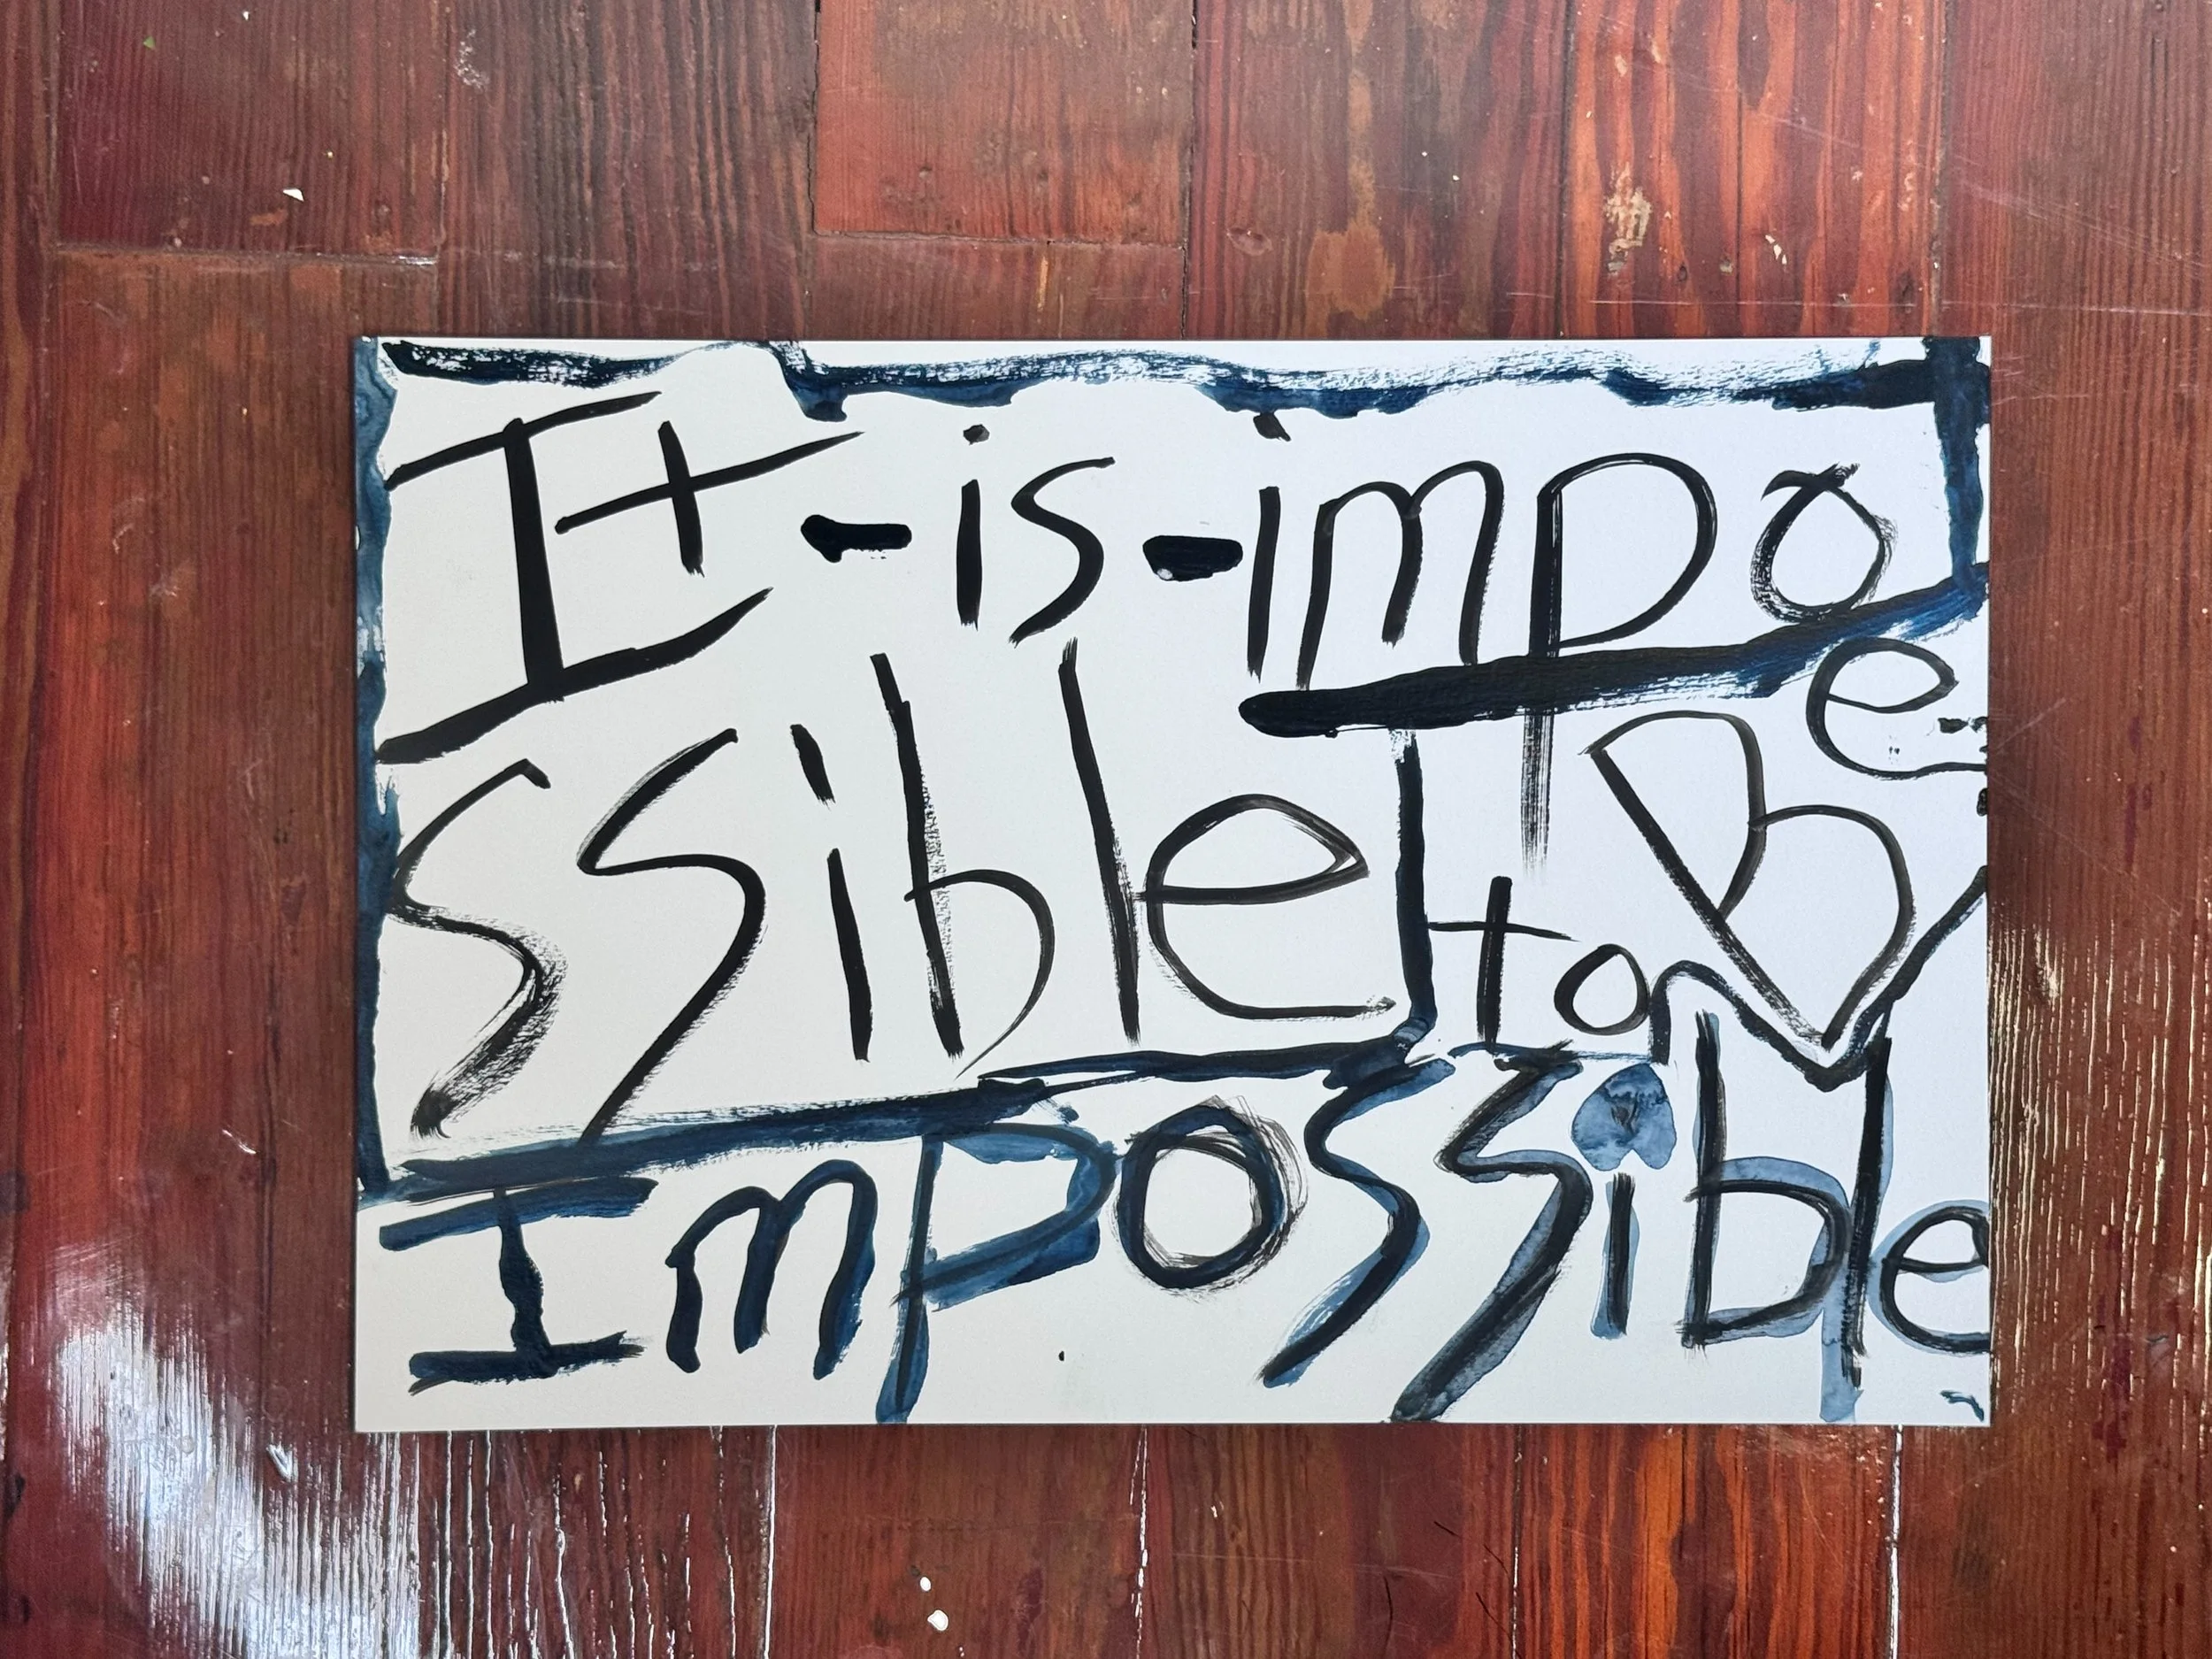 It-is-impo
ssible to Be-
Impossible